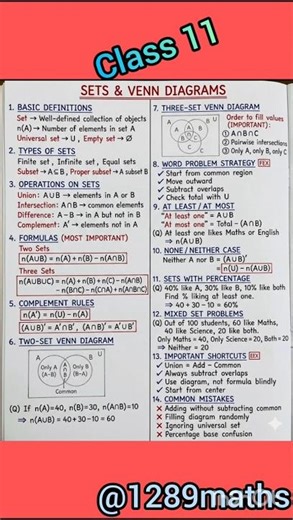 Class 11
SETS & VENN DIAGRAMS
1. BASIC DEFINITIONS
Set → Well-defined collection of objects
n(A) → Number of elements in set A
Universal set → U , Empty set → Ø
2. TYPES OF SETS
Finite set , Infinite set , Equal sets
Subset → A⊆B, Proper subset → A subset B
3. OPERATIONS ON SETS
Union: A∪B → elements in A or B
Intersection: A∩B → common elements
Difference: A−B → in A but not in B
Complement: A′ → elements not in A
4. FORMULAS (MOST IMPORTANT)
Two Sets
n(A∪B) = n(A) + n(B) − n(A∩B)
Three Sets
n(A∪B∪C) = n(A) + n(B) + n(C) − n(A∩B)
− n(B∩C) − n(C∩A) + n(A∩B∩C)
5. COMPLEMENT RULES
n(A′) = n(U) − n(A)
(A∪B)′ = A′∩B′ , (A∩B)′ = A′∪B′
6. TWO-SET VENN DIAGRAM
A B U
Only A
(A−B)
A
∩
B
Only B
(B−A)
Common
(Q) If n(A)=40, n(B)=30, n(A∩B)=10
⇒ n(A∪B) = 40+30−10 = 60
7. THREE-SET VENN DIAGRAM
Order to fill values
(IMPORTANT):
① A∩B∩C
② Pairwise intersections
③ Only A, only B, only C
8. WORD PROBLEM STRATEGY
✓ Start from common region
✓ Move outward
✓ Subtract overlaps
✓ Check total with U
9. AT LEAST / AT MOST
"At least one" = A∪B
"At most one" = Total − (A∩B)
(Q) At least one likes Maths or English
⇒ n(A∪B)
10. NONE/NEITHER CASE
Neither A nor B = (A∪B)′
= n(U) − n(A∪B)
11. SETS WITH PERCENTAGE
(Q) 40% like A, 30% like B, 10% like both
Find % liking at least one.
⇒ 40 + 30 − 10 = 60%
12. MIXED SET PROBLEMS
(Q) Out of 100 students, 60 like Maths,
40 like Science, 20 like both.
Only Maths = 40, Only Science = 20, Both = 20
⇒ Neither = 20
13. IMPORTANT SHORTCUTS
✓ Union = Add − Common
✓ Always subtract overlaps
✓ Use diagram, not formula blindly
✓ Start from center
14. COMMON MISTAKES
✗ Adding without subtracting common
✗ Filling diagram randomly
✗ Ignoring universal set
✗ Percentage base confusion
@1289maths